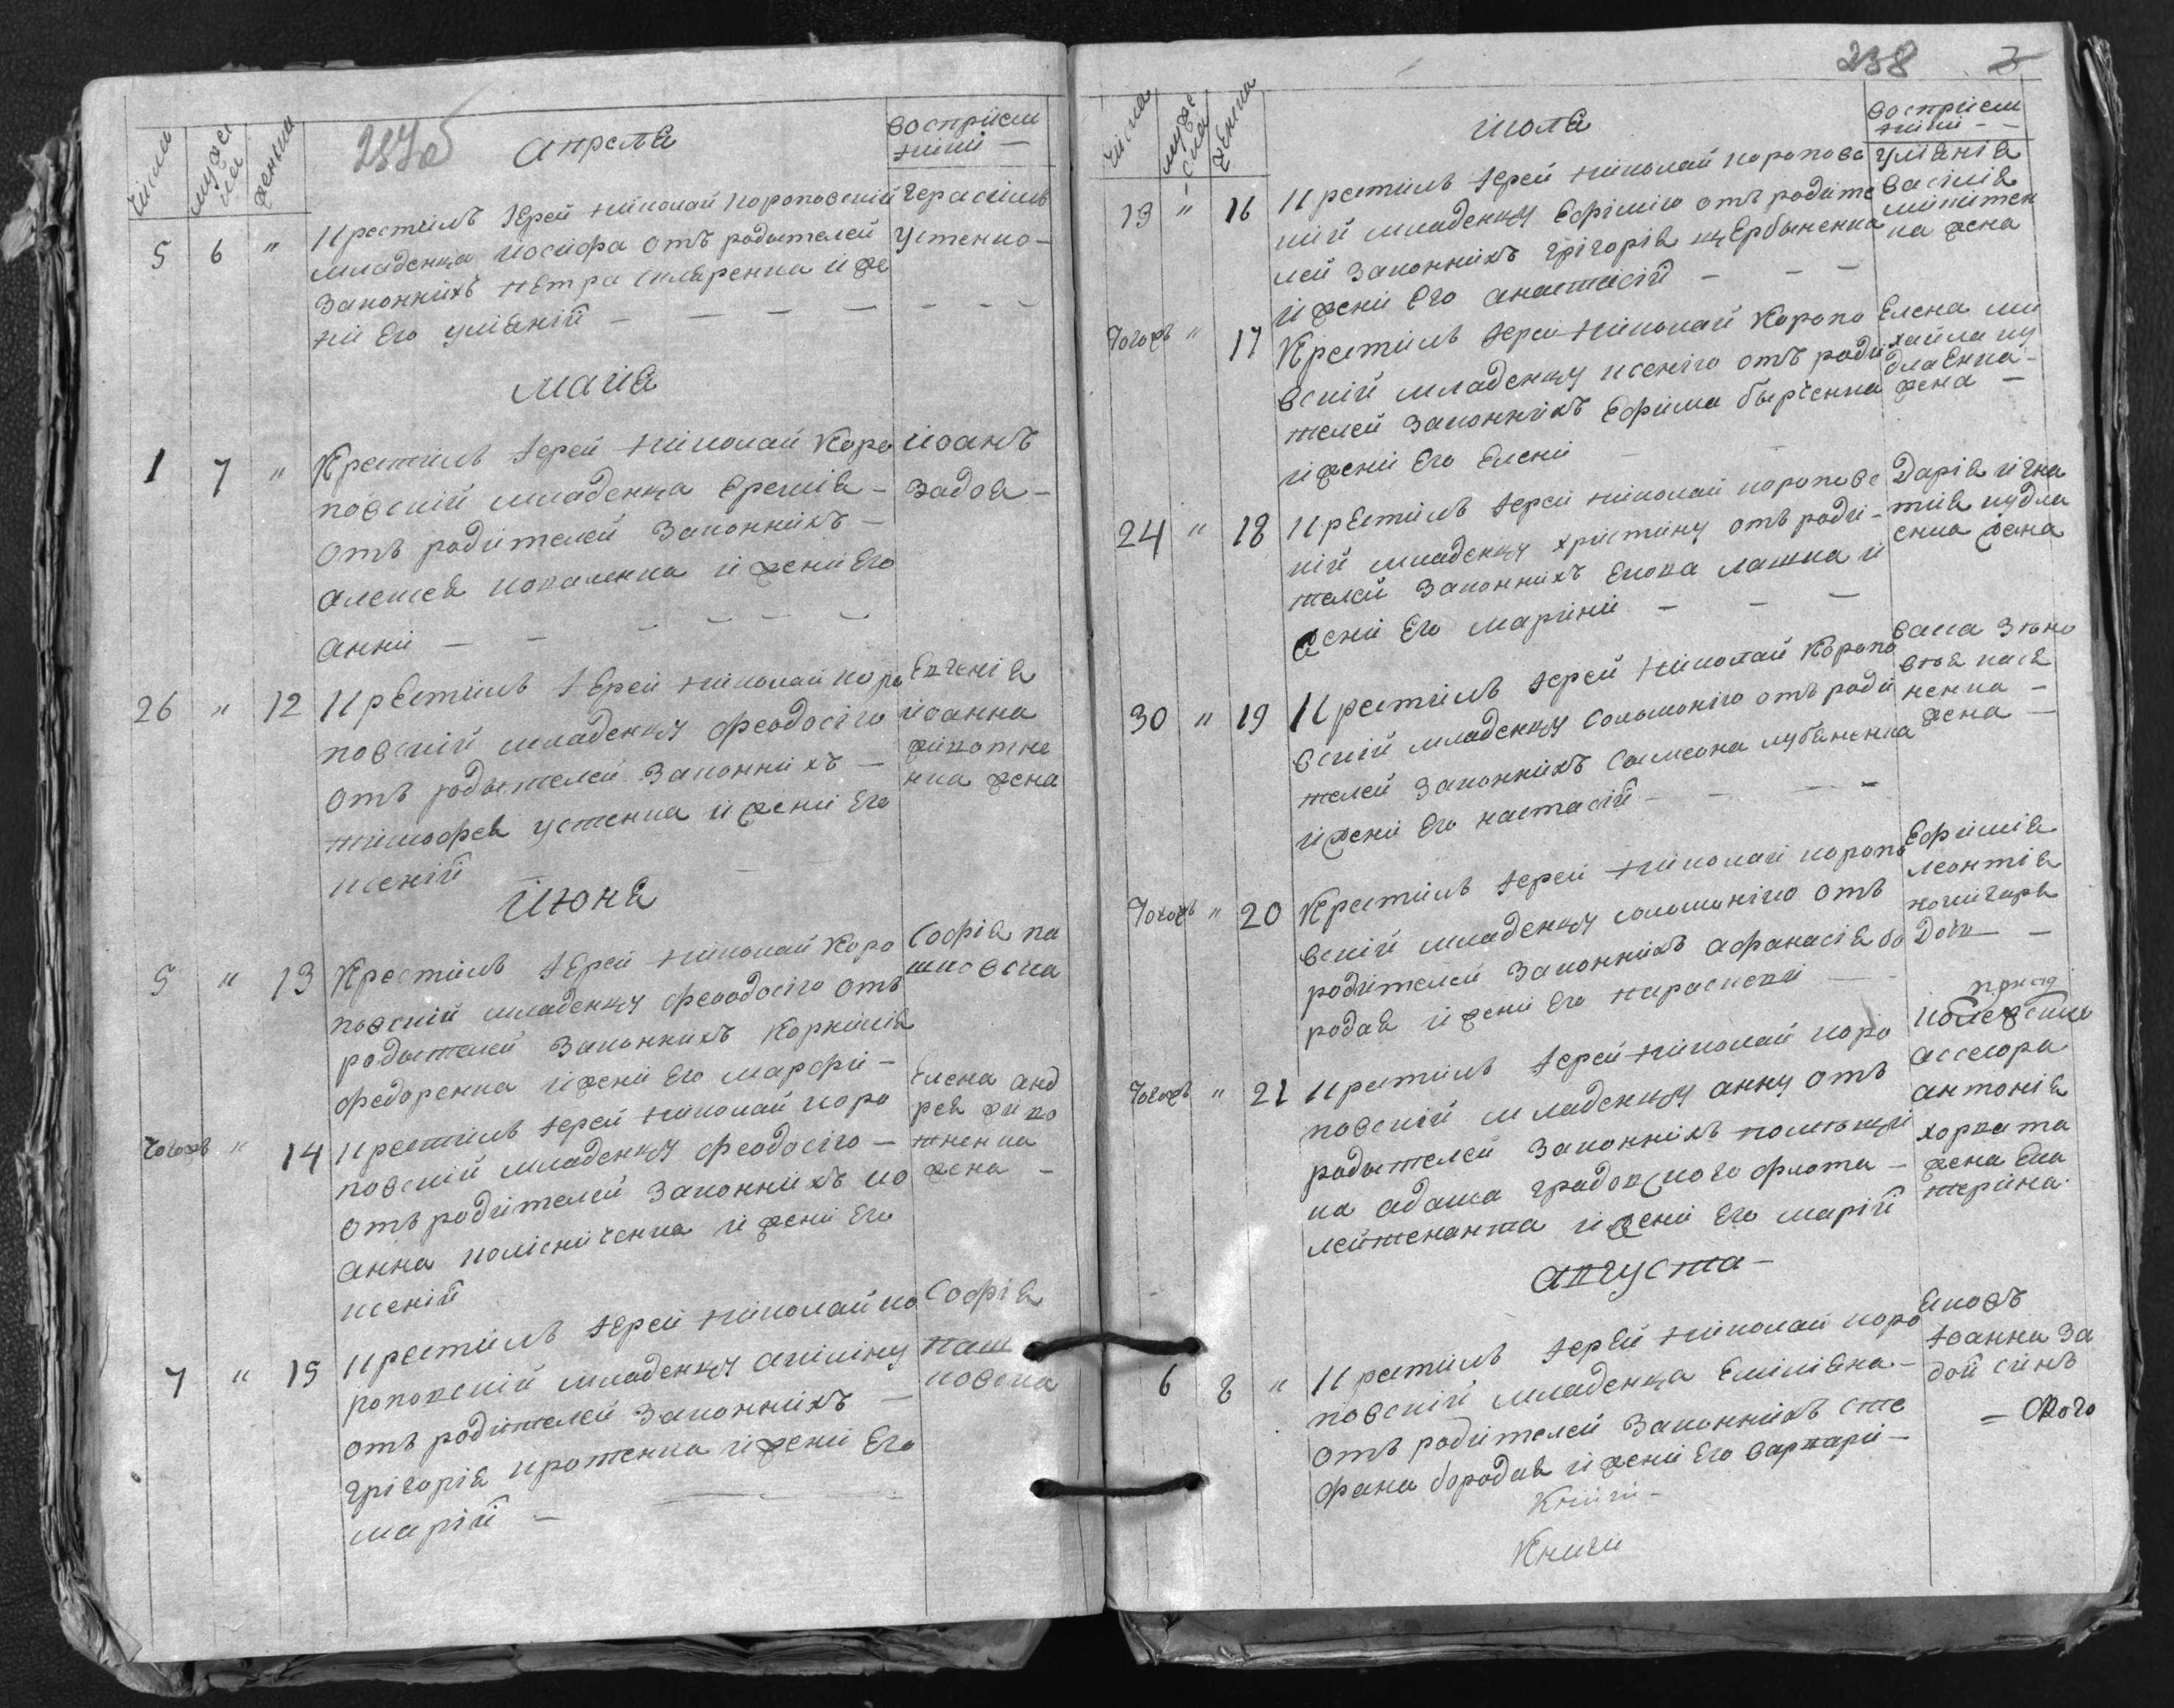 237об
числа
мужеска
женска
Апреля
восприем
ники —
5 6 "
Крестилъ Іерей Николай Короповскій
младенца Иосифа отъ родителей
законнихъ Петра Скляренка и же
ни его Улияніи — — — —
Герасимъ
Устенко —
Маия
1 7 "
Крестилъ Іерей Николай Коро
повскій младенца Еремія —
отъ родителей законнихъ —
Алексея Коваленка и жени его
Анни — — — — —
Иоанъ
Задоя —
26 " 12
Крестилъ Іерей Николай Коро
повскій младенцу Феодосію
отъ родителей законнихъ —
Тимофея Устенка и жени его
Ксеніи
Евгенія
Иоанна
Животне
нка жена
Июня
5 " 13
Крестилъ Іерей Николай Коро
повскій младенцу Феодосію отъ
родителей законнихъ Корнилія
Федоренка и жени его Марфи —
Софія па
шковска
тогожъ " 14
Крестилъ Іерей Николай Коро
повскій младенцу Феодосію —
отъ родителей законнихъ Ио
анна Колісниченка и жени его
Ксеніи
Елена Анд
рея Живо
тненка
жена —
7 " 15
Крестилъ Іерей Николай Ко
роповскій младенцу Акилину
отъ родителей законнихъ —
Григорія Кротенка и жени его
Маріи —
Софія
Паш
ковска
238
числа
мужеска
женска
Июля
восприем
ники —
13 " 16
Крестилъ Іерей Николай Короповс
кій младенцу Ефимію отъ родите
лей законнихъ Григорія Щербиненка
и жени его Анастасіи — — —
Улиянія
Василія
Микитен
ка жена
тогожъ " 17
Крестилъ Іерей Николай Коропо
вскій младенцу Ксенію отъ роди
телей законнихъ Ефима Бырченка
и жени его Елени
Елена Ми
хайла Ку
длаенка —
жена —
24 " 18
Крестилъ Іерей Николай Короповс
кій младенцу Христину отъ роди —
телей законнихъ Якова Лашка и
жени его Марини — — —
Дарія Игна
тія Кудла
енка жена
30 " 19
Крестилъ Іерей Николай Коропо
вскій младенцу Соломонію отъ роди
телей законнихъ Самсона Лубяненка
и жени его Настасіи — — —
васа Зѣно
вія Кася
ненка —
жена —
тогожъ " 20
Крестилъ Іерей Николай Коропо
вскій младенцу Соломонію отъ
родителей законнихъ Афанасія Бо
родая и жени его Параскеви —
Ефимія
Леонтія
Кошчаря
дочь — —
тогожъ " 21
Крестилъ Іерей Николай Коро
повскій младенцу Анну отъ
родителей законнихъ помѣщи
ка Адама Градовского флота —
лейтенанта и жени его Маріи
Колежские
ассесора
Антонія
Хорвата
жена Ека
терина.
Августа —
6 8 "
Крестилъ Іерей Николай Коро
повскій младенца Емиліяна —
отъ родителей законнихъ Сте
фана Бородая и жени его Варвари —
Яковъ
Іоанна За
дой синъ
Книги —
Книги